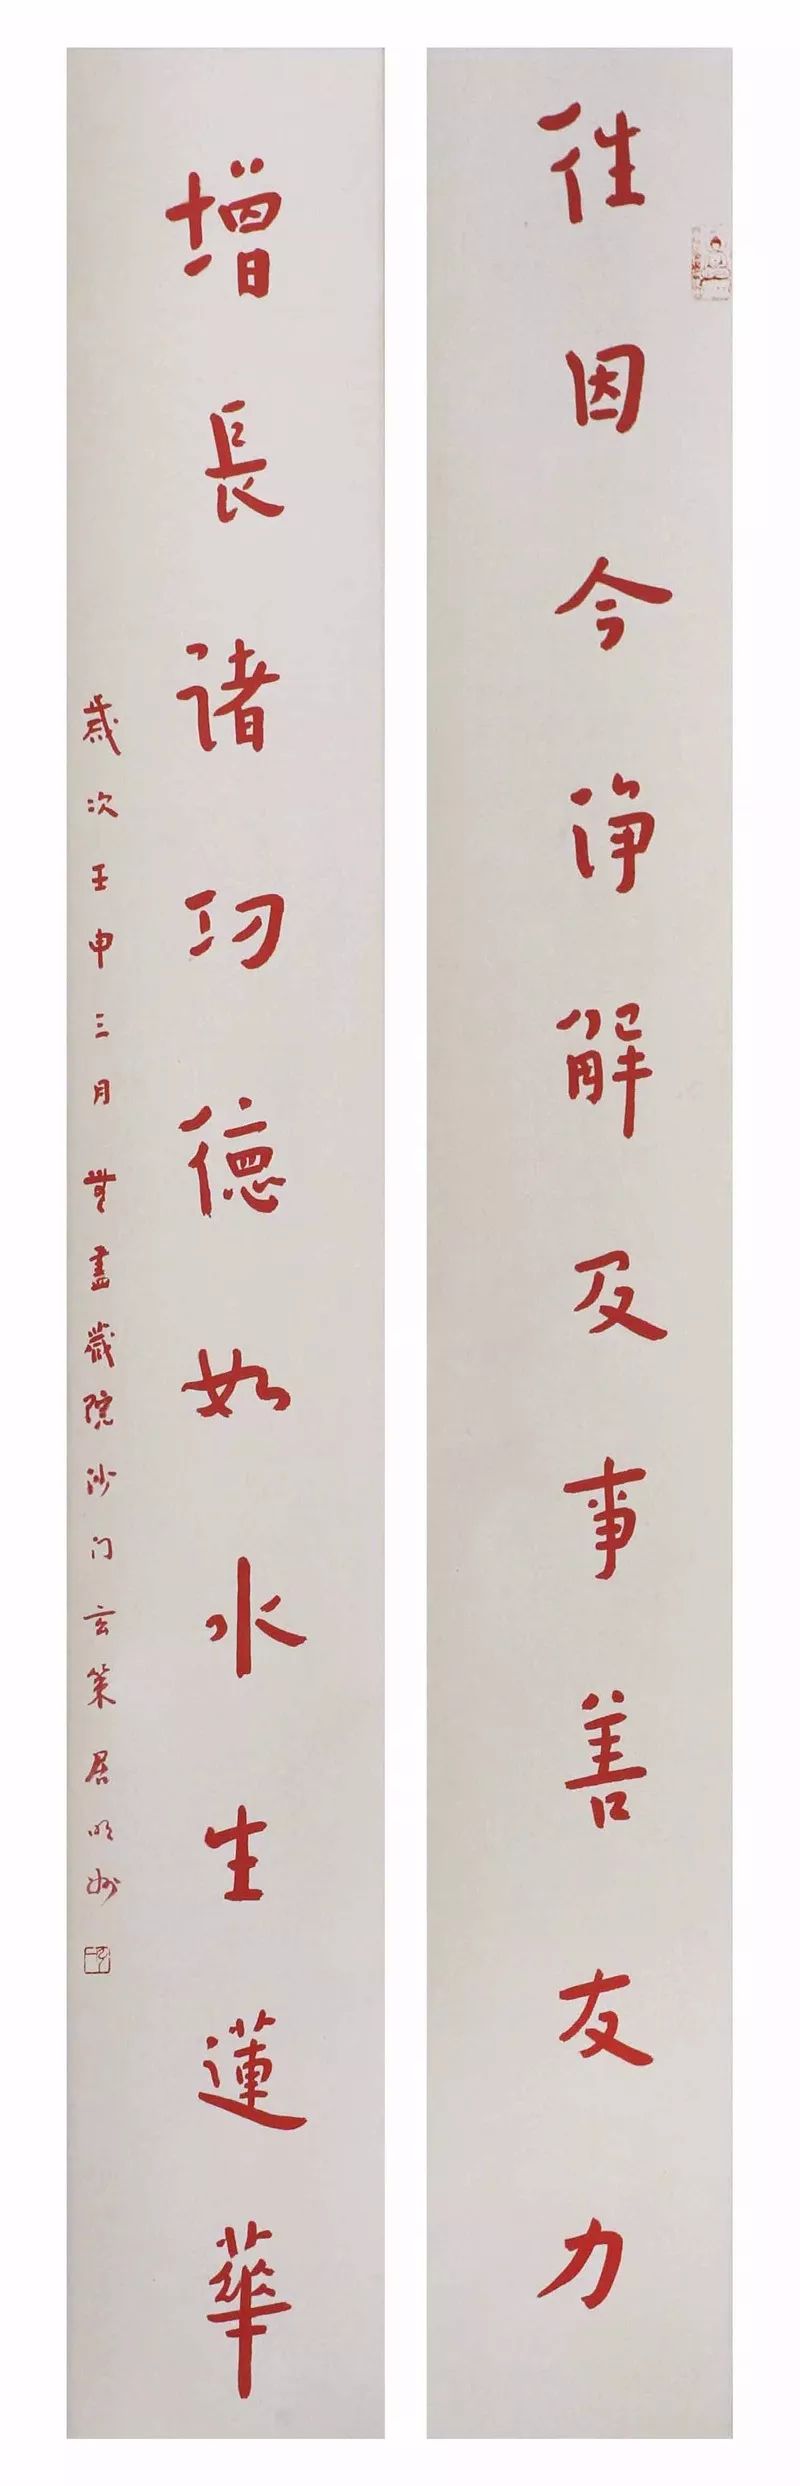 往因今净解及事善友力
增長诸功德如水生蓮華
歲次壬申三月無盡藏院沙门玄策居明州